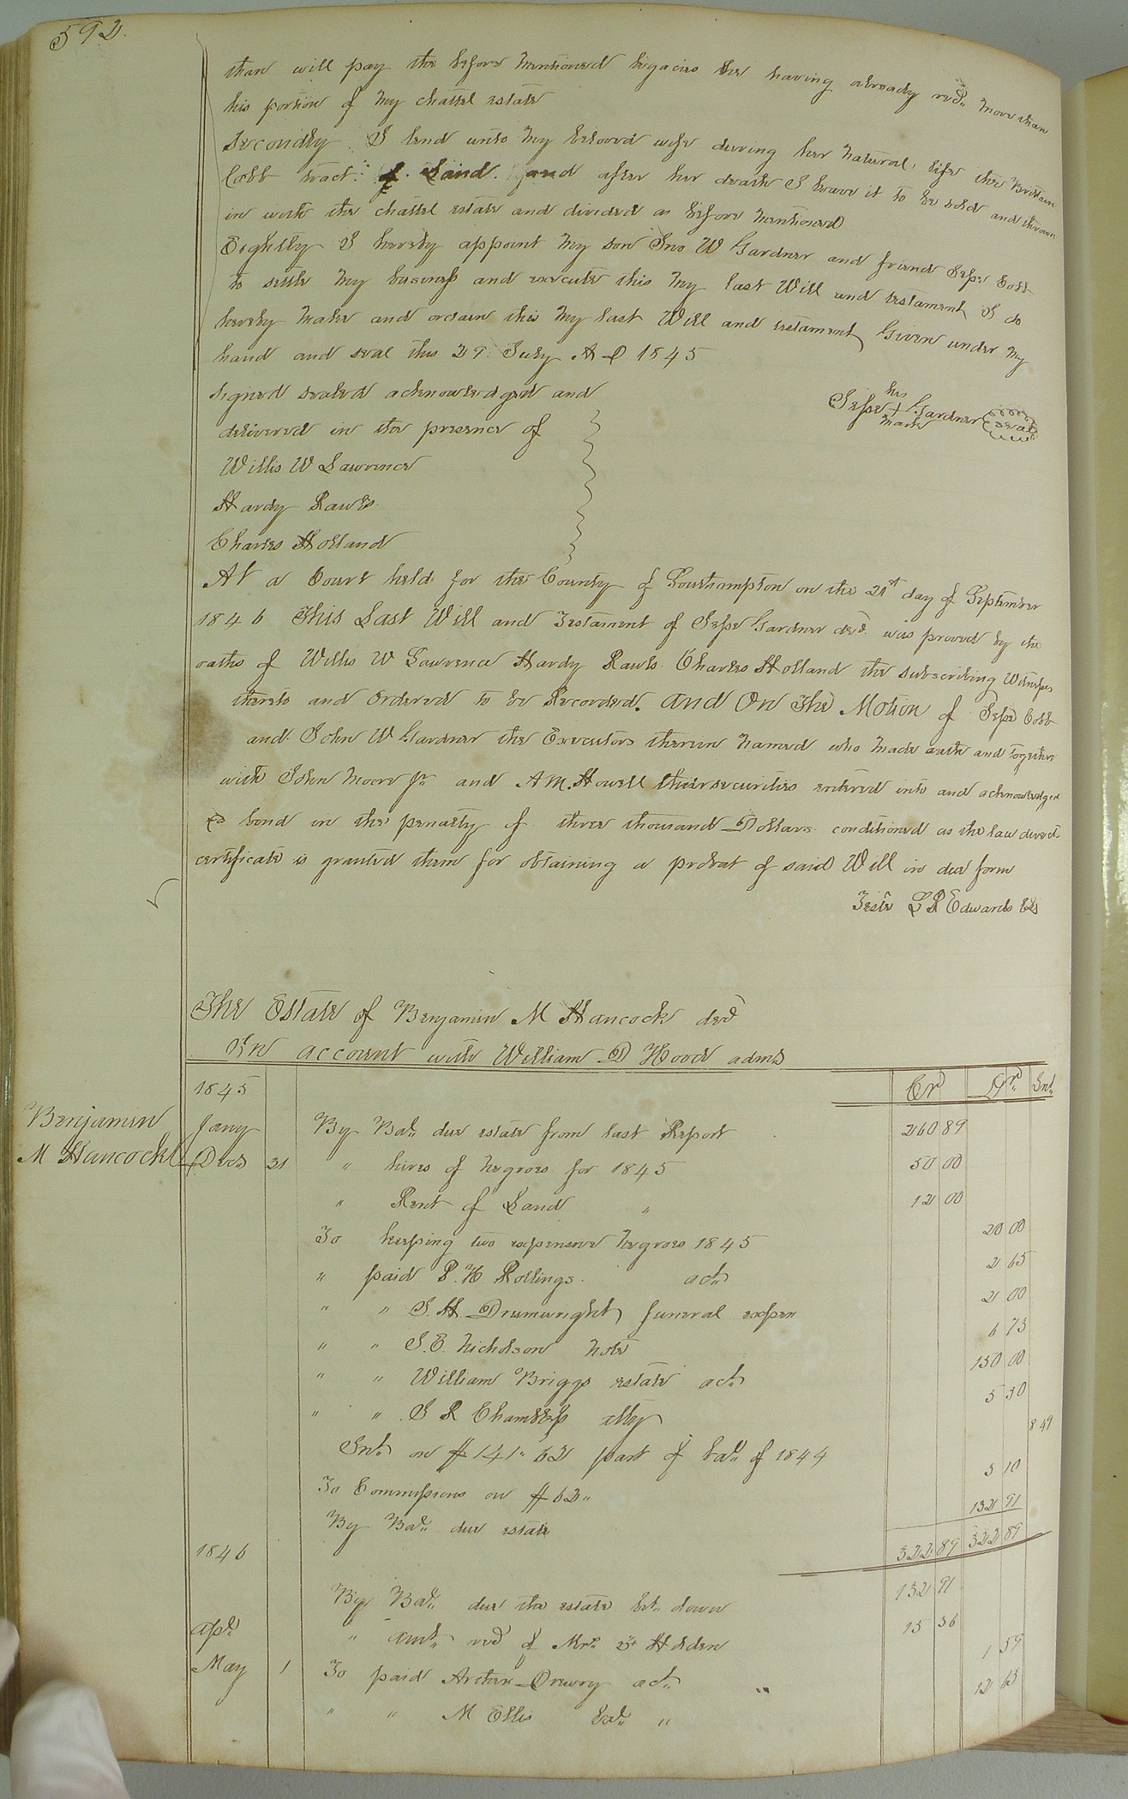 592.
than will pay the before mentioned legacies he having already recd. more than
his portion of my chattel estate
Secondly I lend unto my beloved wife during her natural life the Britain
Cobb tract of Land. and after her death I leave it to be sold and thrown
in with the chattel estate and divided as before mentioned
Eightly I hereby appoint my son Jno W Gardner and friend Jesse Cobb
to settle my business and execute this my last Will and testament I do
hereby make and ordain this my last Will and testament, Given under my
hand and seal this 29. July A D 1845
Jesse his + mark Gardner seal
Signed sealed acknowledged and
delivered in the presence of
Willis W Lawrence
Hardy Rawls
Charles Holland
At a Court held for the County of Southampton on the 21st day of September
1846 This Last Will and Testament of Jesse Gardner decd. was proved by the
oaths of Willis W Lawrence Hardy Rawls Charles Holland the subscribing Witnesses
thereto and Ordered to be Recorded. and On The Motion of Jesse Cobb
and John W Gardner the Executors therein named who made oath and together
with John Moore Jr and A M. Howell their securities entered into and acknowledged
a bond in the penalty of three thousand Dollars conditioned as the law directs
certificate is granted them for obtaining a probat of said Will in due form
Teste L R Edwards Clk
The Estate of Benjamin M Hancock decd
In account with William D Hood adms
1845 Crd Dr. Int.
Benjamin
M Hancock
Jany By Bal. due estate from last Report 260 89
Decr 31 " hires of negroes for 1845 50 00
" Rent of Land " 12 00
To keeping two expensive negroes 1845 20 00
" paid P. H Rollings act. 2 65
" " S. H Drumwright, funeral expen 2 00
" " J. E. Nicholson note 6 73
" " William Briggs estate act. 150 00
" " J R Chambliss atty 5 50
Int. on $141.62 part of bal. of 1844 8 49
To Commissions on $62. 3 10
By Bal. due estate 132 91
322 89 322 89
1846
By Bal. due the estate bt. down 132 91
Apl. " amt. recd of Mrs. Holden 15 36
May 1 To paid Arthur Drewry act. " 1 59
" " M Ellis bal. " 12 63